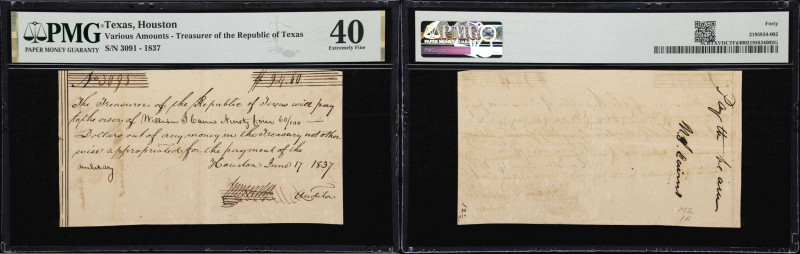 PMG
PAPER MONEY GUARANTY
Texas, Houston
Various Amounts - Treasurer of the Republic of Texas
S/N 3091 - 1837
40
Extremely Fine
No 3091
$ 94.60
The Treasurer of the Republic of Texas will pay
to the order of William J Cairns Ninety four 60/100
Dollars out of any money in the Treasury not other
wise appropriated for the payment of the
military
Houston June 17 1837
Auditor
PMG
Forty
2195834-002
Pay the
W J Cairns
12½